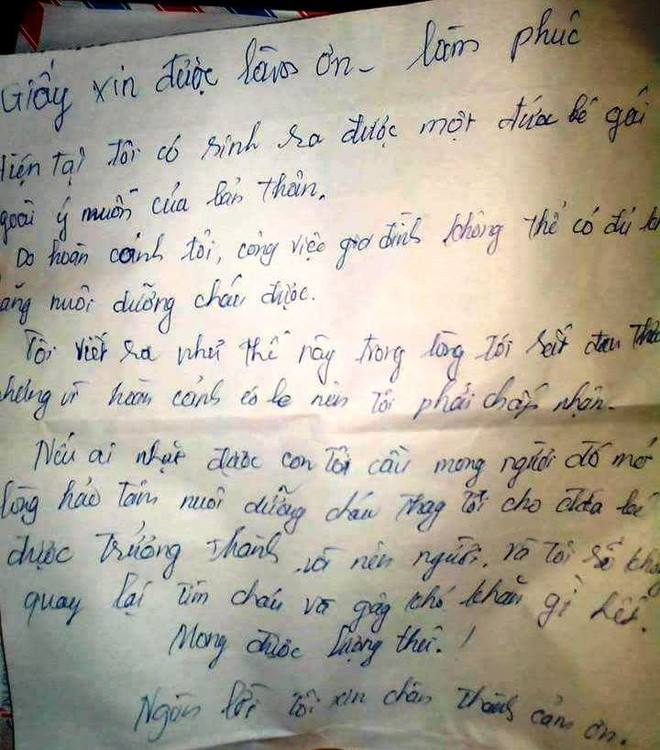 Giấy xin được làm ơn - làm phúc
Hiện tại tôi có sinh ra được một đứa bé gái
ngoài ý muốn của bản thân.
Do hoàn cảnh tôi, công việc gia đình không thể có đủ k
năng nuôi dưỡng cháu được.
Tôi viết ra như thế này trong lòng tôi rất đau
nhưng vì hoàn cảnh éo le nên tôi phải chấp nhận.
Nếu ai nhặt được con tôi cầu mong người đó mở
lòng hảo tâm nuôi dưỡng cháu thay tôi cho đứa bé
được trưởng thành và nên người, và tôi sẽ
quay lại tìm cháu và gây khó khăn gì hết.
Mong được lượng thứ.!
Ngàn lời tôi xin chân thành cảm ơn.